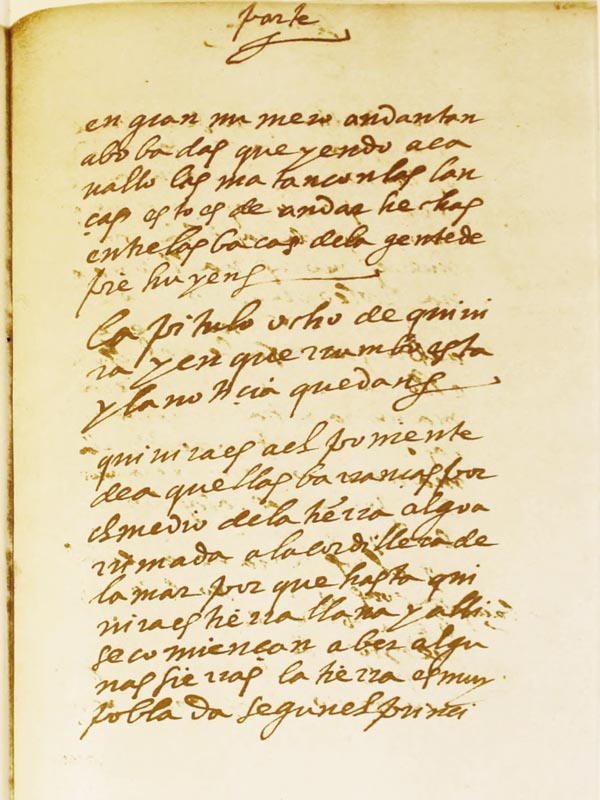 parte
en gran numero andan tan
abobadas que yendo a ca
uallo las matan con las lan
cas esto es de andar hechas
entre las bacas de la gente de
pie huyen
capitulo ocho de quiui
ra y en que rrumbo esta
y la noticia que dan
quiuira es a el poniente
de aquellas barrancas por
el medio de la tierra algo a
rrimada a la cordillera de
la mar por que hasta qui
uira es tierra llana y alli
se comiencan a ber algu
nas sierras la tierra es muy
poblada segun el princi